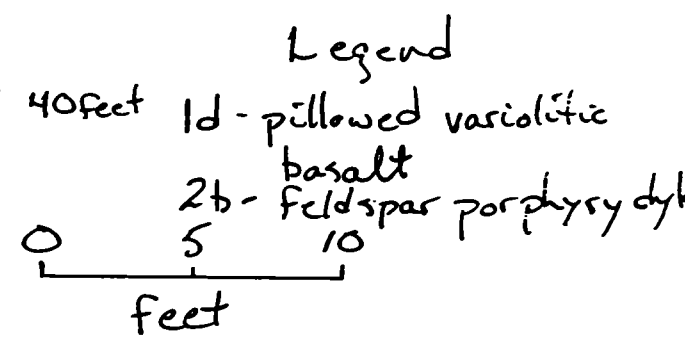 Legend
40feet 1d - pillowed variolitic
basalt
2b - feldspar porphyry
0 5 10
feet